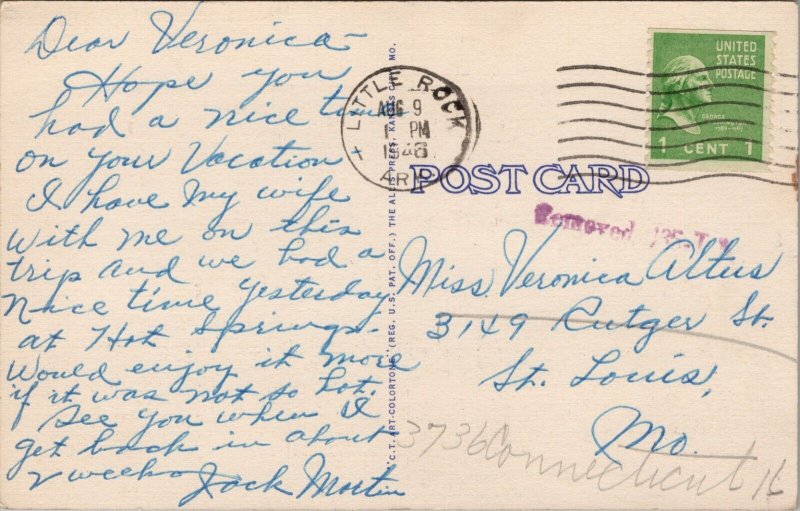 Dear Veronica-
Hope you
had a nice time
on your Vacation
I have My wife
with me on this
trip and we had a
Nice time yesterday
at Hot Springs.
Would enjoy it more
if it was not so hot.
See you when I
get back in about
2 weeks Jack Mortin
"C.T. ART-COLORTONE" (REG. U.S. PAT. OFF.) THE ALLIS PRESS, KANSAS CITY, MO.
LITTLE ROCK
AUG 9
PM
ARK
UNITED
STATES
POSTAGE
GEORGE
WASHINGTON
1789-1797
1 CENT 1
POST CARD
Removed
Miss. Veronica Altus
3149 Rutger St.
St. Louis,
Mo.
3736 Connecticut 16